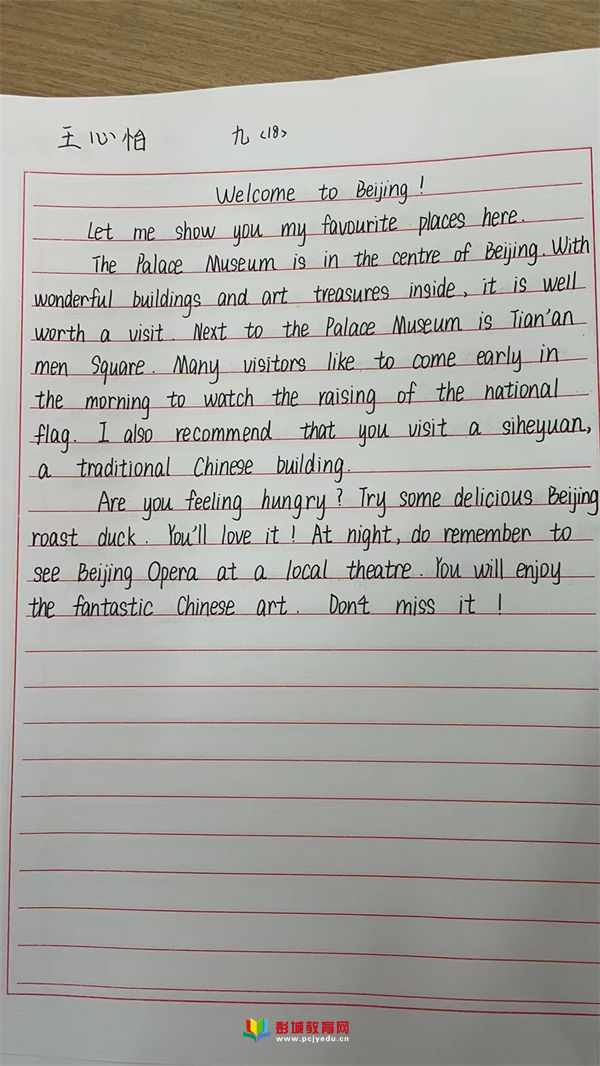 王心怡 九<18>
Welcome to Beijing!
Let me show you my favourite places here.
The Palace Museum is in the centre of Beijing. With
wonderful buildings and art treasures inside, it is well
worth a visit. Next to the Palace Museum is Tian'an
men Square. Many visitors like to come early in
the morning to watch the raising of the national
flag. I also recommend that you visit a siheyuan,
a traditional Chinese building.
Are you feeling hungry? Try some delicious Beijing
roast duck. You'll love it! At night, do remember to
see Beijing Opera at a local theatre. You will enjoy
the fantastic Chinese art. Don't miss it!
彭城教育网
www.pcjyedu.cn